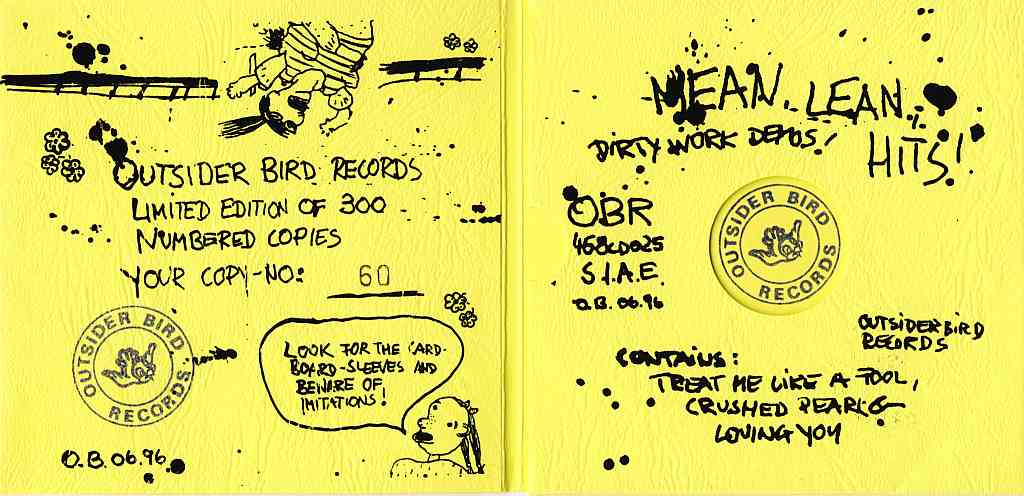 OUTSIDER BIRD RECORDS
LIMITED EDITION OF 300
NUMBERED COPIES
YOUR COPY-NO: 60
OUTSIDER BIRD RECORDS
LOOK FOR THE CARD-
BOARD-SLEEVES AND
BEWARE OF
IMITATIONS!
O.B. 06.96
MEAN, LEAN,
HITS!
DIRTY WORK DEMOS!
OBR
468CD025
S.I.A.E.
O.B. 06.96
OUTSIDER BIRD RECORDS
OUTSIDER BIRD
RECORDS
CONTAINS:
TREAT ME LIKE A FOOL,
CRUSHED PEARLS
LOVING YOU